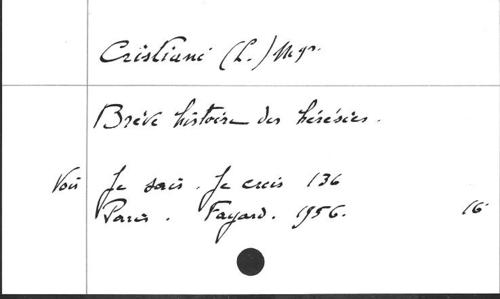 Cristiani (L.) Mgr.
Brève histoire des hérésies.
Voir Je sais. Je crois 136
Paris. Fayard. 1956. 16